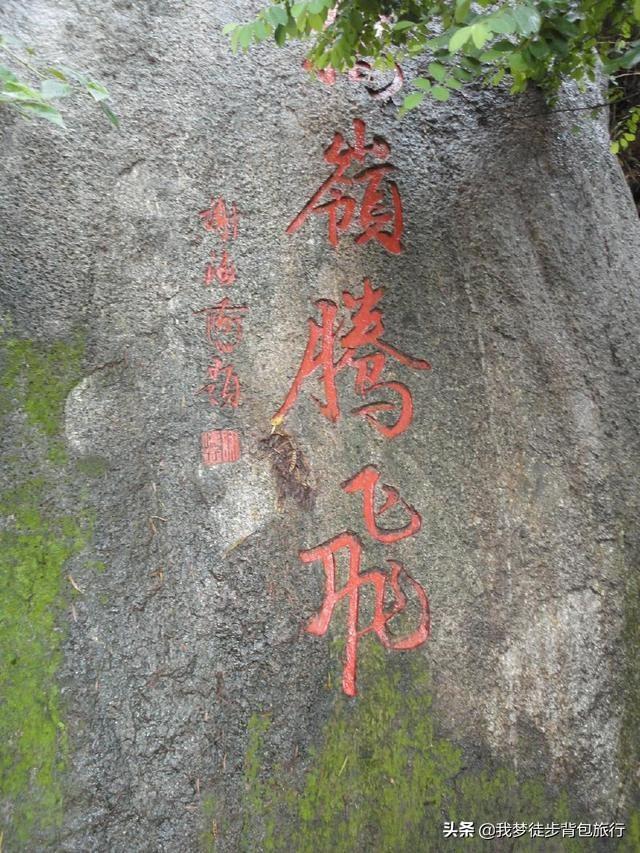 嶺騰飛
謝海題
头条 @我梦徒步背包旅行